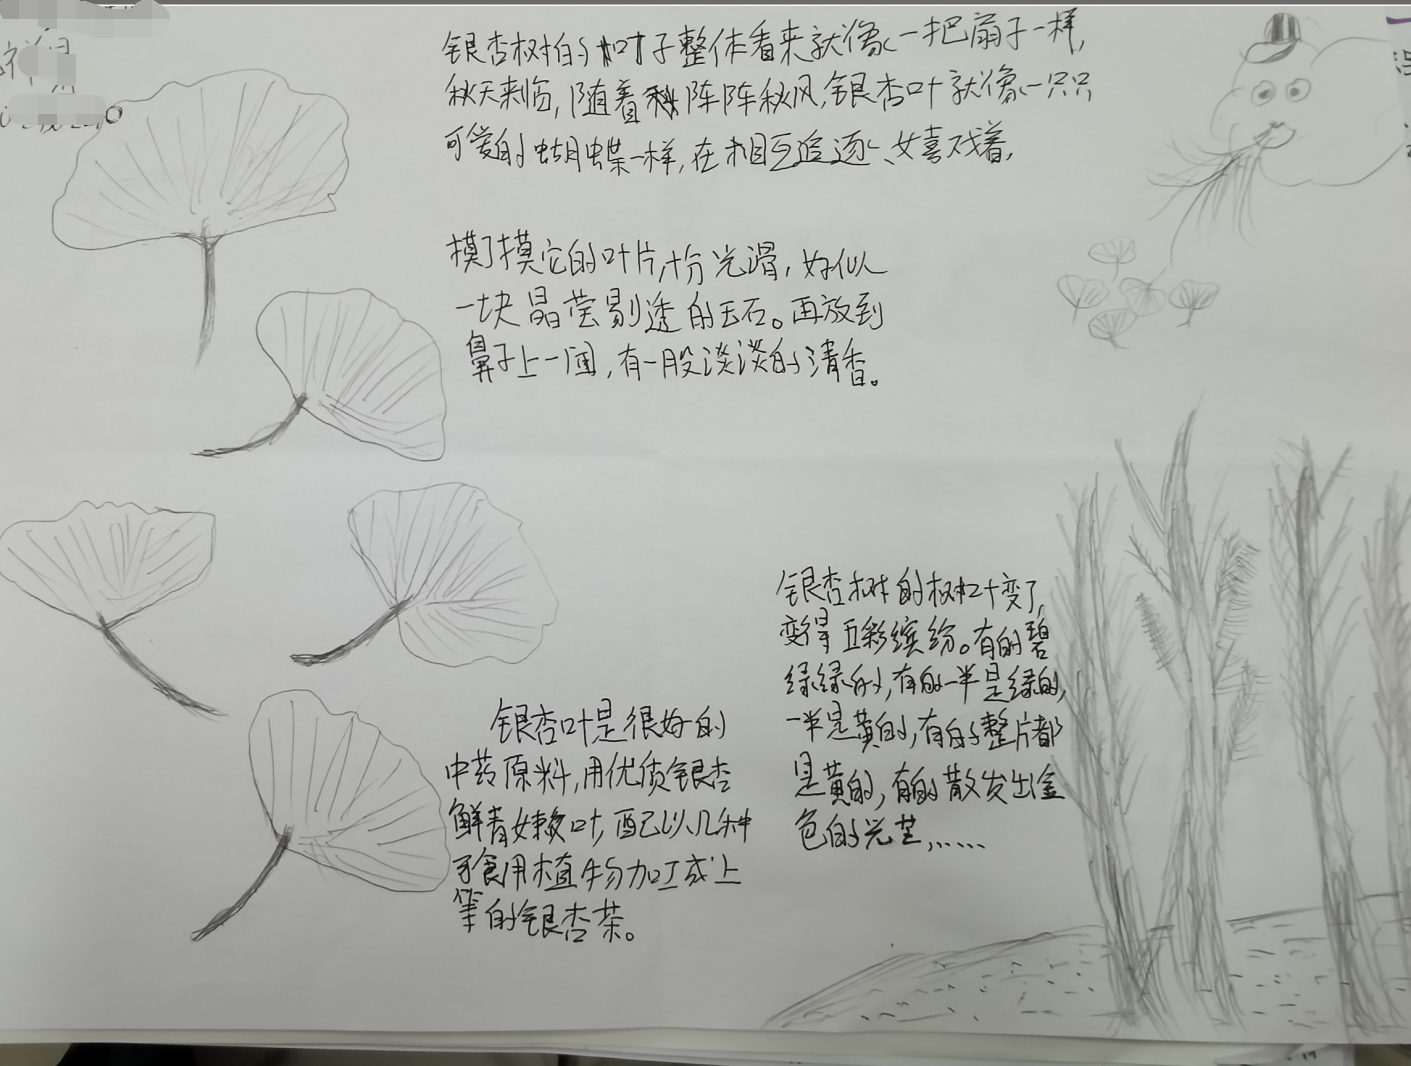 银杏树的叶子整体看来就像一把扇子一样,
秋天来临,随着秋阵阵秋风,银杏叶就像一只只
可爱的蝴蝶一样,在相互追逐、嬉戏着,
摸了摸它的叶片,十分光滑,好似
一块晶莹剔透的玉石。再放到
鼻子上一闻,有一股淡淡的清香。
银杏树的树叶变了,
变得五彩缤纷。有的碧
绿绿的,有的一半是绿的,
一半是黄的,有的整片都
是黄的,有的散发出金
色的光芒,……
银杏叶是很好的
中药原料,用优质银杏
鲜青嫩叶,配以几种
可食用植物加工成上
等的银杏茶。